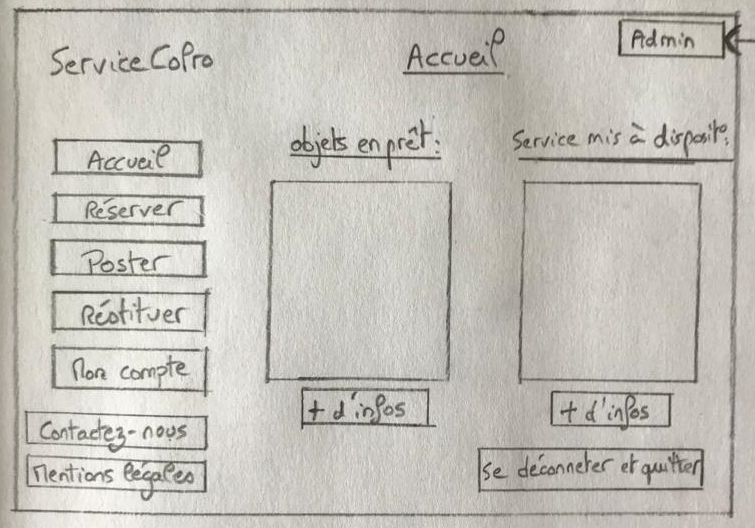 Service CoPro
Accueil
Admin
Accueil
Réserver
Poster
Réstituer
Mon compte
Contactez-nous
Mentions légales
objets en prêt:
+ d'infos
Service mis à disposit°:
+ d'infos
Se déconneter et quitter